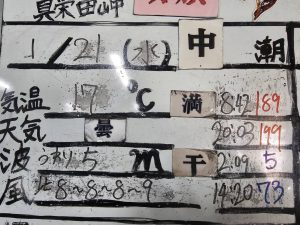 真栄田岬
1/21(水) 中 潮
気温 17℃ 満 8:42 189
天気 曇 20:03 199
波 うねり5m 干 2:09 5
風 北8~8~8~9 14:20 73